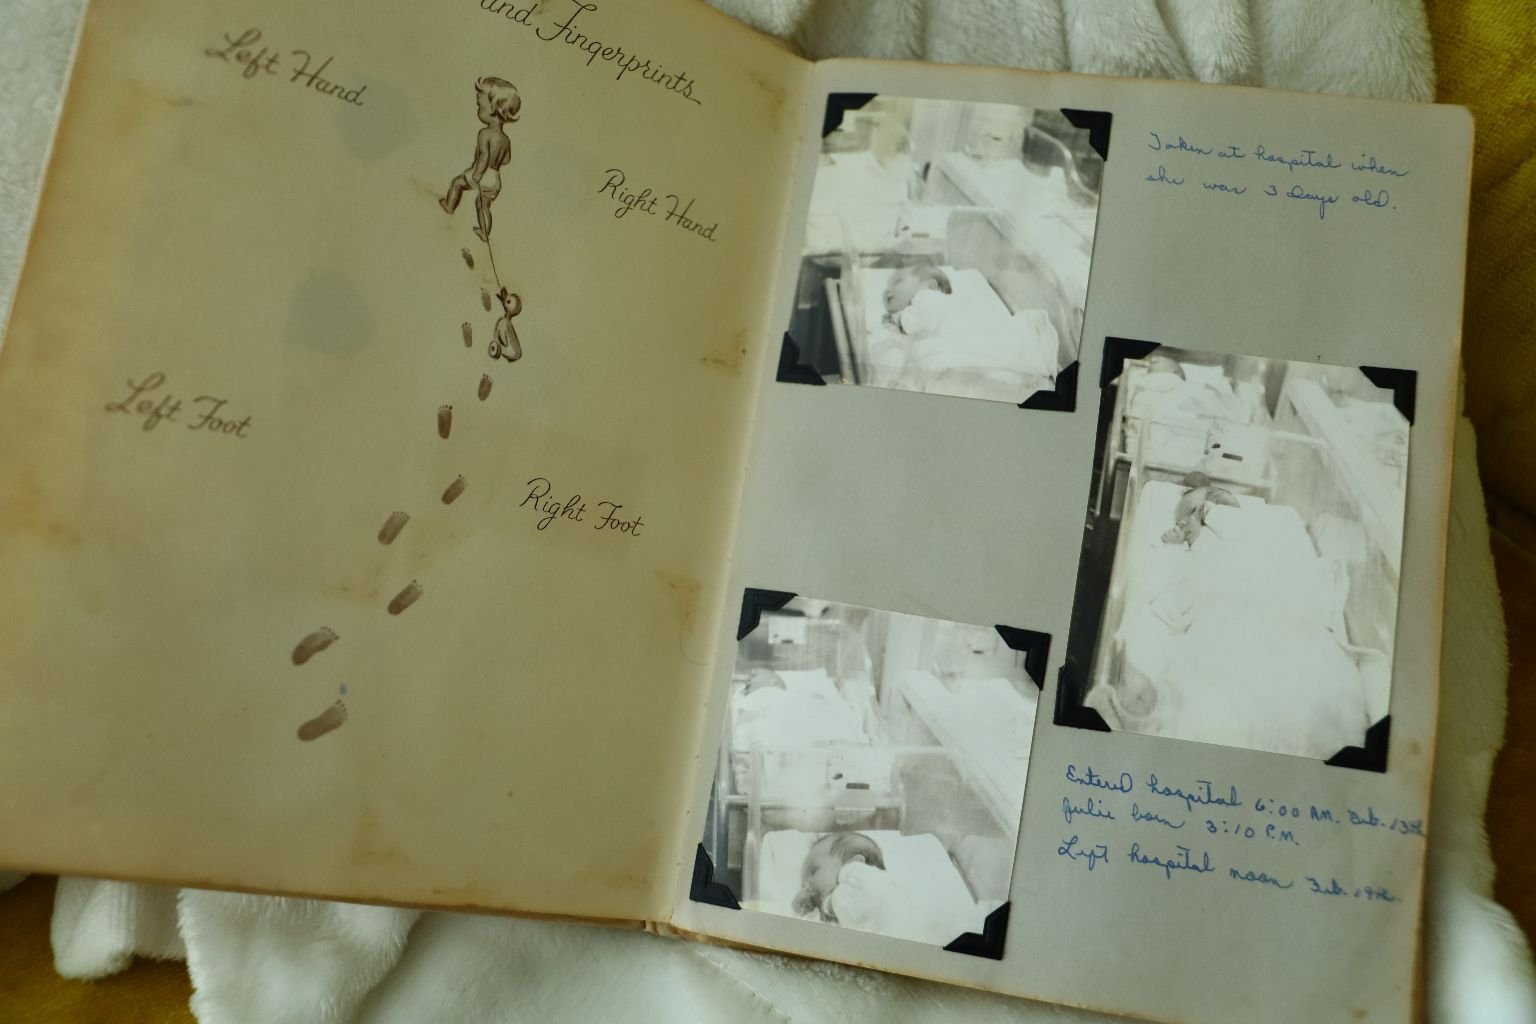 and Fingerprints
Left Hand
Right Hand
Left Foot
Right Foot
Taken at hospital when
she was 3 days old.
Entered hospital 6:00 AM. Feb. 13th
Julie born 3:10 P.M.
Left hospital noon Feb. 19th.